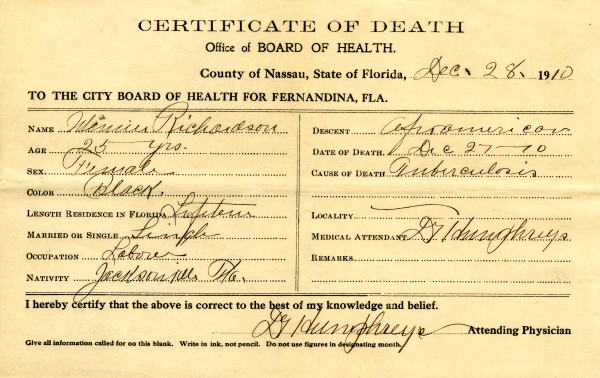 CERTIFICATE OF DEATH
Office of BOARD OF HEALTH.
County of Nassau, State of Florida, Dec. 28. 1910
TO THE CITY BOARD OF HEALTH FOR FERNANDINA, FLA.
NAME Richardson
AGE 25 yrs.
SEX Female
COLOR Black
LENGTH RESIDENCE IN FLORIDA Lifetime
MARRIED OR SINGLE Single
OCCUPATION Labour
NATIVITY Jacksonville Fla.
DESCENT Afroamerican
DATE OF DEATH Dec 27-10
CAUSE OF DEATH Tuberculosis
LOCALITY
MEDICAL ATTENDANT D G Humphreys
REMARKS
I hereby certify that the above is correct to the best of my knowledge and belief.
D G Humphreys Attending Physician
Give all information called for on this blank. Write in ink, not pencil. Do not use figures in designating month.